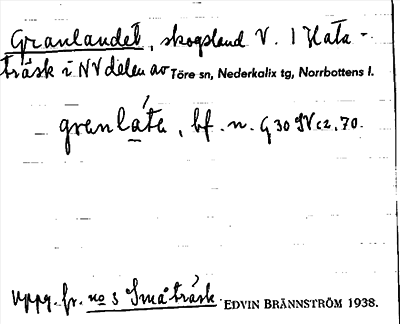 Granlandet, skogsland V. I Hata-
träsk i NV delen av Töre sn, Nederkalix tg, Norrbottens l.
granláta, bf. n. G 30 SV cz. 70.
Uppg. fr. no 3 Småträsk. EDVIN BRÄNNSTRÖM 1938.